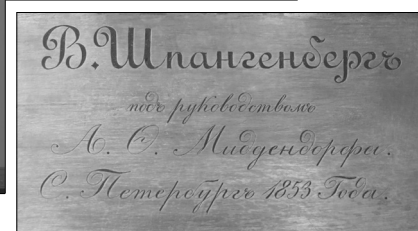 В. Шпангенбергъ
подъ руководствомъ
А. Ѳ. Миддендорфа.
С. Петербургъ 1853 Года.